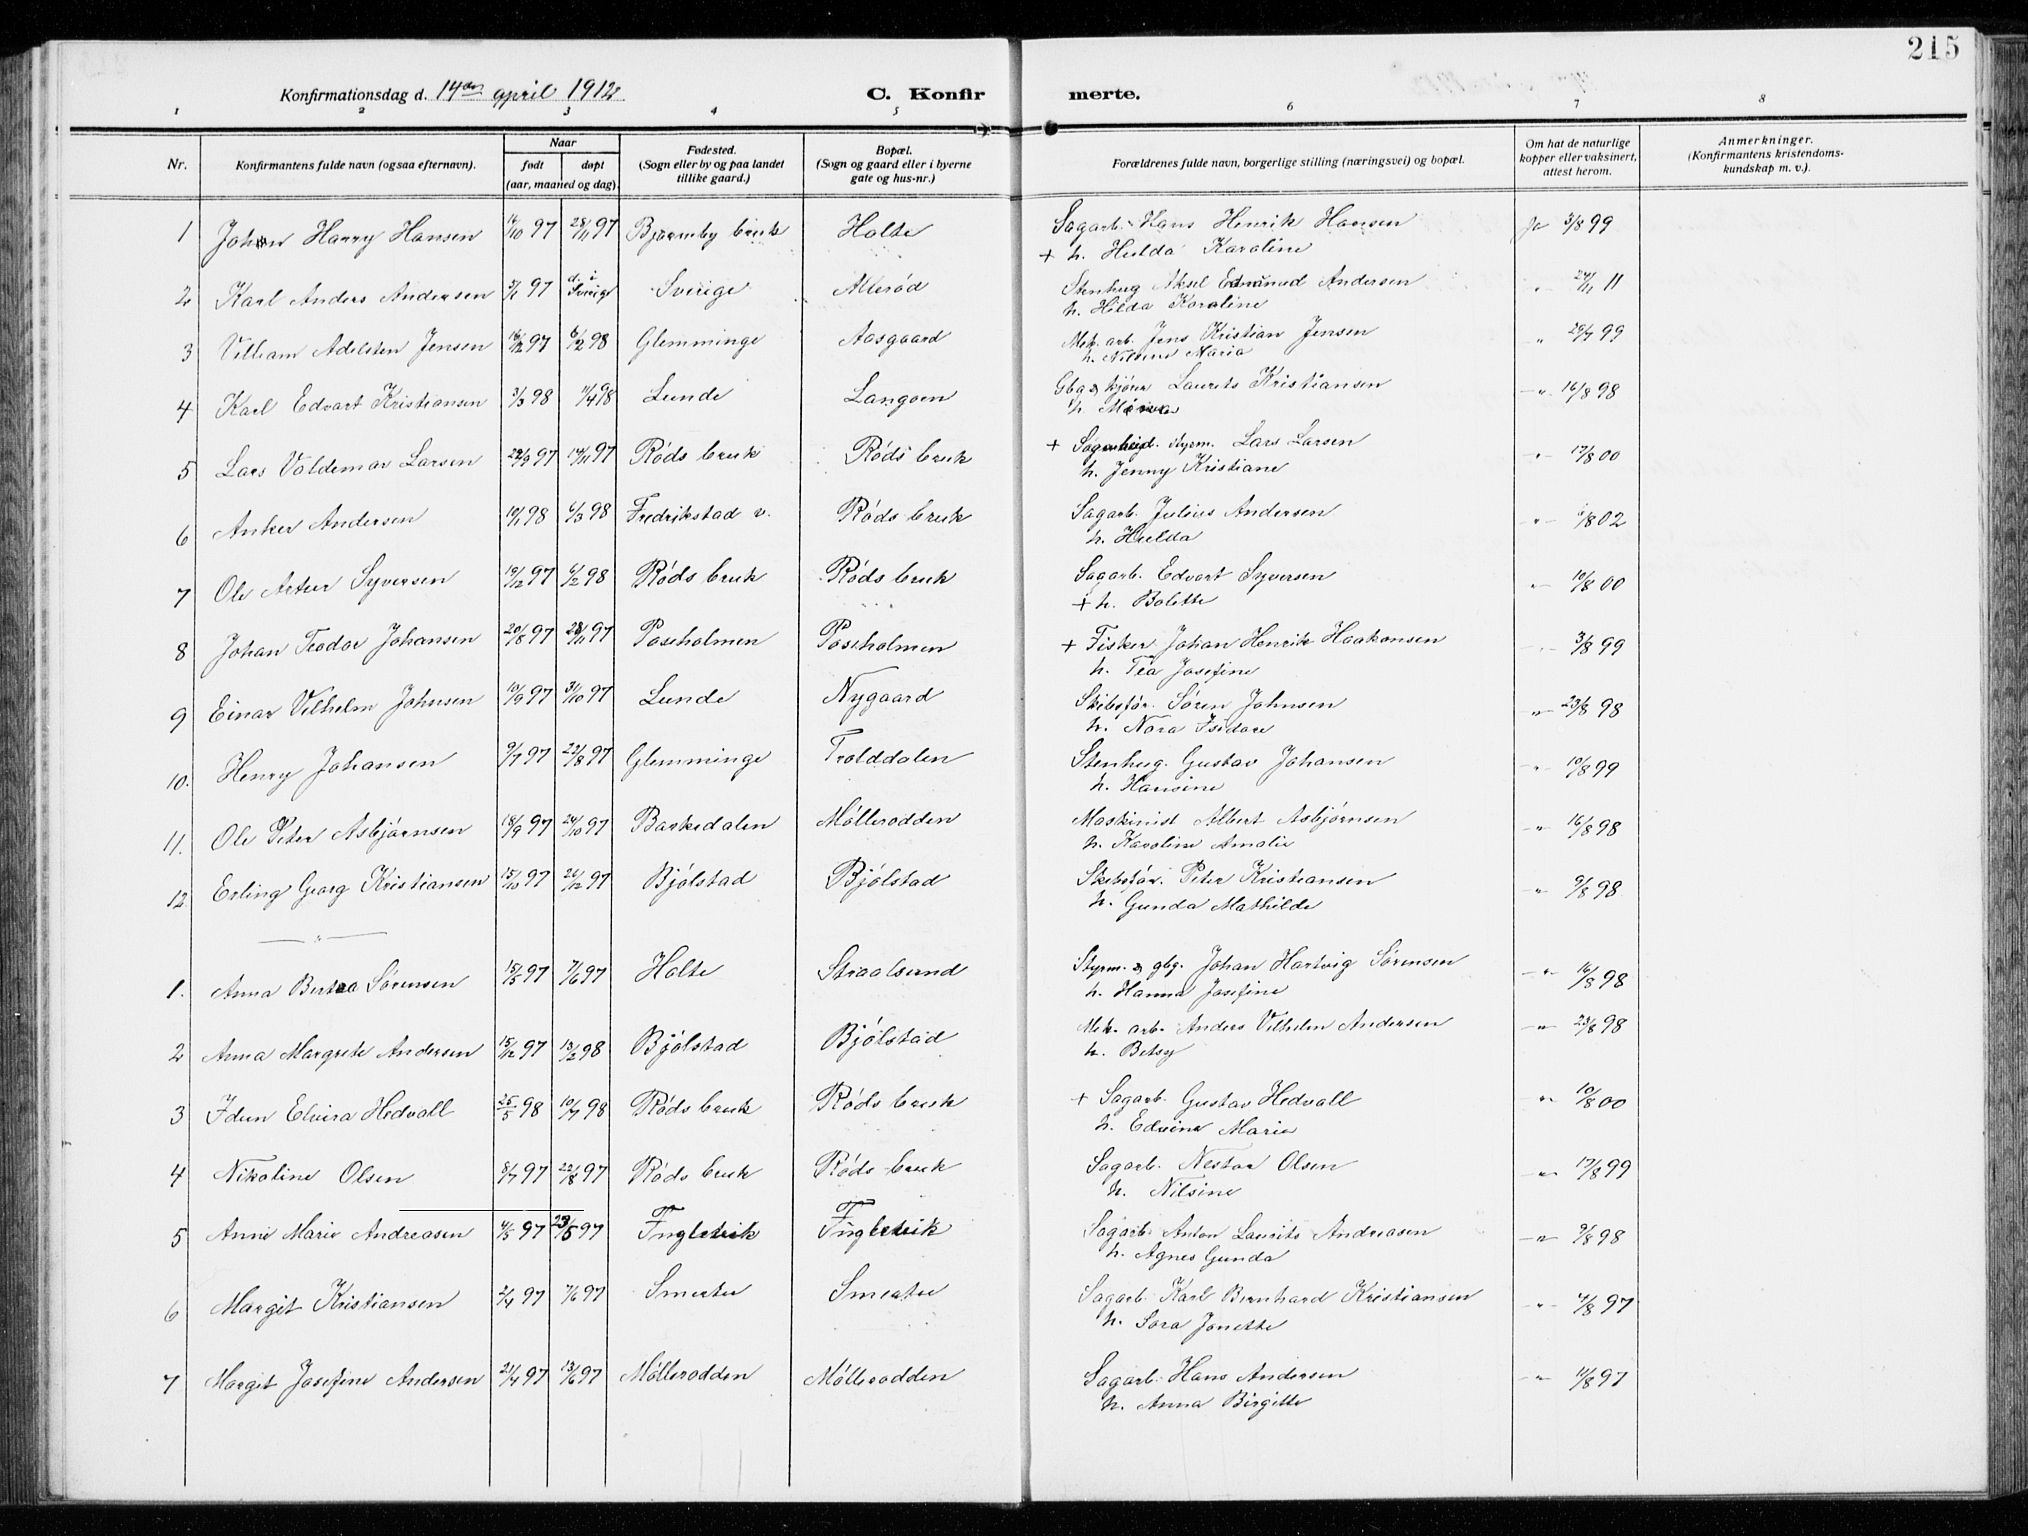 215
Konfirmationsdag d. 14de april 1912
C. Konfirmerte.
1 2 3 4 5 6 7 8
Nr. Konfirmantens fulde navn (ogsaa efternavn). Naar født døpt (aar, maaned og dag). Fødested. (Sogn eller by og paa landet tillike gaard.) Bopæl. (Sogn og gaard eller i byerne gate og hus-nr.) Forældrenes fulde navn, borgerlige stilling (næringsvei) og bopæl. Om hat de naturlige kopper eller vaksinert, attest herom. Anmerkninger. (Konfirmantens kristendomskundskap m. v.).
1 Johan Harry Hansen 14/10 97 28/11 97 Bjørneby bruk Holte Sagarb. Hans Henrik Hansen Ja 3/8 99
+ h. Hulda Karoline
2 Karl Anders Andersen 5/1 97 d. i Sverige Sverige Allerød Stenhug Aksel Edmund Andersen " 24/11 11
h. Hilda Karoline
3 Villiam Adelsten Jensen 16/12 97 6/2 98 Glemminge Aasgaard Mek. arb. Jens Kristian Jensen " 29/7 99
h. Nilsine Maria
4 Karl Edvart Kristiansen 3/3 98 11/4 98 Lunde Langøen Gbg. & kjører Laurits Kristiansen " 16/8 98
h.
5 Lars Valdemar Larsen 22/9 97 14/11 97 Røds bruk Røds bruk + Sagarbeid. styrm. Lars Larsen " 17/8 00
h. Jenny Kristiane
6 Anker Andersen 10/1 98 6/3 98 Fredrikstad v. Røds bruk Sagarb. Julius Andersen " 1/8 02
h. Hulda
7 Ole Artur Syversen 19/12 97 6/2 98 Røds bruk Røds bruk Sagarb. Edvart Syversen " 10/8 00
+ h. Bolette
8 Johan Teodor Johansen 20/8 97 28/11 97 Poseholmen Poseholmen + Fisker Johan Henrik Haakonsen " 3/8 99
h. Tea Josefine
9 Einar Vilhelm Johnsen 10/9 97 31/10 97 Lunde Nygaard Skibsfør. Søren Johnsen " 23/8 98
h. Nora Isidore
10. Henry Johansen 9/7 97 22/8 97 Glemminge Trolddalen Stenhug. Gustav Johansen " 10/8 99
h. Hansine
11. Ole Peter Asbjørnsen 18/9 97 24/10 97 Barkedalen Møllerodden Maskinist Albert Asbjørnsen " 16/8 98
h. Karoline Amalie
12 Erling Georg Kristiansen 15/10 97 26/12 97 Bjølstad Bjølstad Skibsfør. Peter Kristiansen " 9/8 98
h. Gunda Mathilde
"
1. Anna Berta Sørensen 15/5 97 7/6 97 Holte Straalsund Styrm. & gbg. Johan Hartvig Sørensen " 16/8 98
h. Hanna Josefine
2 Anna Margrete Andersen 15/12 97 13/2 98 Bjølstad Bjølstad Mek. arb. Anders Vilhelm Andersen " 23/8 98
h. Betsy
3 Idun Elvira Hedvall 25/5 98 10/7 98 Røds bruk Røds bruk + Sagarb. Gustav Hedvall " 10/8 00
h. Edvine Marie
4 Nikoline Olsen 8/7 97 22/8 97 Røds bruk Røds bruk Sagarb. Nestor Olsen " 17/8 99
h. Nilsine
5 Anne Marie Andreasen 4/5 97 23/5 97 Fuglevik Fuglevik Sagarb. Anton Laurits Andreasen " 9/8 98
h. Agnes Gunda
6 Margit Kristiansen 2/4 97 7/6 97 Smertu Smertu Sagarb. Karl Bernhard Kristiansen " 4/8 97
h. Sara Jonette
7 Margit Josefine Andersen 21/4 97 13/6 97 Møllerodden Møllerodden Sagarb. Hans Andersen " 11/8 97
h. Anna Birgitte